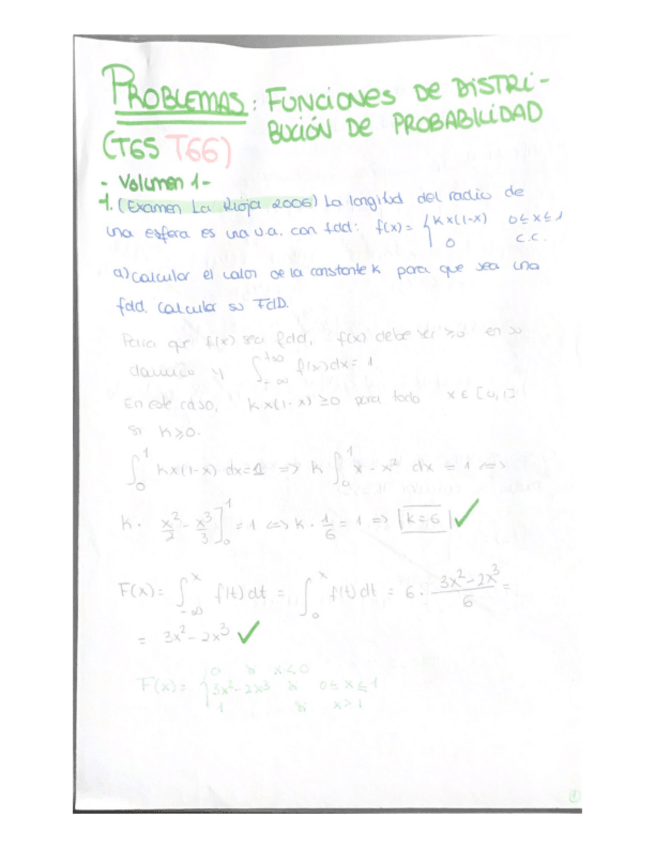 PROBLEMAS: FUNCIONES DE DISTRI-
BUCIÓN DE PROBABILIDAD
(T65 T66)
- Volumen 1 -
1. (Examen La Rioja 2006) La longitud del radio de
una esfera es una v.a. con fdd: f(x) = { kx(1-x) 0≤x≤1
0 c.c.
a) Calcular el valor de la constante k para que sea una
fdd, calcular su FdD.
Para que f(x) sea fdd, f(x) debe ser ≥0 en su
dominio y ∫_{-∞}^{+∞} f(x)dx = 1
En este caso, kx(1-x) ≥0 para todo x ∈ [0,1]
si k≥0.
∫_0^1 kx(1-x) dx = 1 => k ∫_0^1 x - x² dx = 1 <=>
k · x²/2 - x³/3 ]_0^1 = 1 <=> k · 1/6 = 1 => k=6 ✓
F(x) = ∫_{-∞}^x f(t)dt = ∫_0^x f(t)dt = 6 · (3x²-2x³)/6 =
= 3x² - 2x³ ✓
F(x) = { 0 si x≤0
3x²-2x³ si 0≤x≤1
1 si x≥1